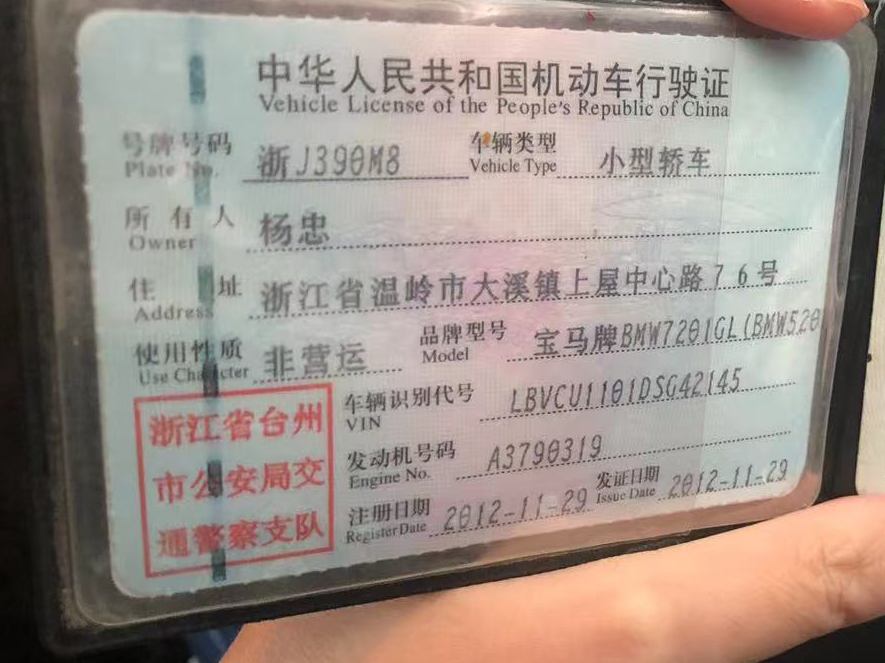 中华人民共和国机动车行驶证
Vehicle License of the People's Republic of China
号牌号码 浙J390M8 车辆类型 小型轿车
Plate No. Vehicle Type
所有人 杨忠
Owner
住址 浙江省温岭市大溪镇上屋中心路76号
Address
使用性质 非营运 品牌型号 宝马牌BMW7201GL(BMW520
Use Character Model
车辆识别代号 LBVCU1101DSG42145
VIN
发动机号码 A3790319
Engine No.
注册日期 2012-11-29 发证日期 2012-11-29
Register Date Issue Date
浙江省台州
市公安局交
通警察支队